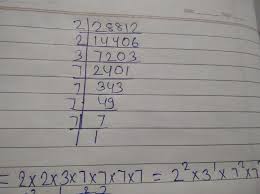 2 28812
2 14406
3 7203
7 2401
7 343
7 49
7 7
1
= 2×2×3×7×7×7×7 = 2²×3¹×7²×7²